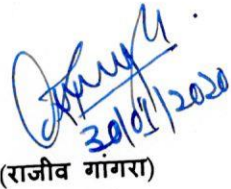 30/01/2020
(राजीव गांगरा)